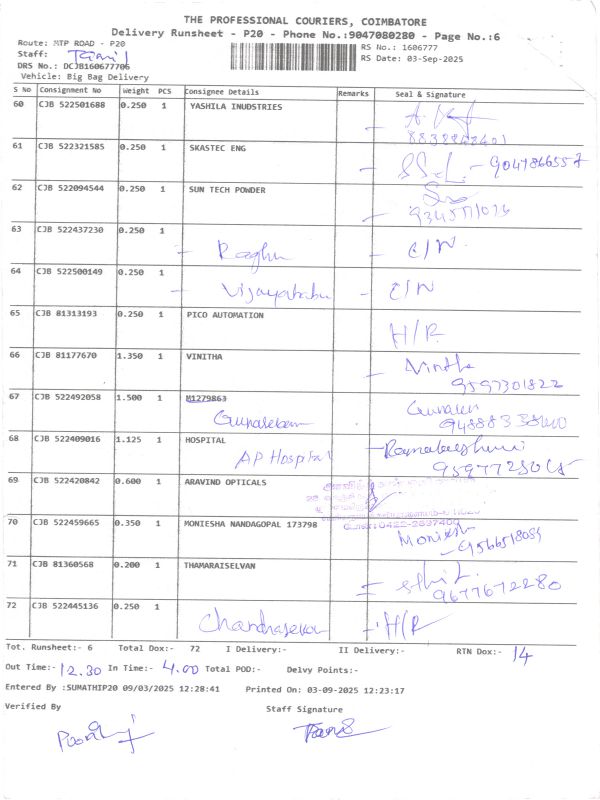 THE PROFESSIONAL COURIERS, COIMBATORE
Delivery Runsheet - P20 - Phone No.:9047080280 - Page No.:6
Route: MTP ROAD - P20
RS No.: 1606777
Staff:
DRS No.: DCJB160677706
RS Date: 03-Sep-2025
Vehicle: Big Bag Delivery
S No Consignment No Weight PCS Consignee Details Remarks Seal & Signature
60 CJB 522501688 0.250 1 YASHILA INUDSTRIES
61 CJB 522321585 0.250 1 SKASTEC ENG
62 CJB 522094544 0.250 1 SUN TECH POWDER
63 CJB 522437230 0.250 1 - Raghu - C/N
64 CJB 522500149 0.250 1 - Vijayababu - C/N
65 CJB 81313193 0.250 1 PICO AUTOMATION H/R
66 CJB 81177670 1.350 1 VINITHA - Vinitha
9597301822
67 CJB 522492058 1.500 1 M1279863
68 CJB 522409016 1.125 1 HOSPITAL
AP Hospital
69 CJB 522420842 0.600 1 ARAVIND OPTICALS
70 CJB 522459665 0.350 1 MONIESHA NANDAGOPAL 173798
71 CJB 81360568 0.200 1 THAMARAISELVAN
9677672280
72 CJB 522445136 0.250 1 Chandrasekar - H/R
Tot. Runsheet:- 6 Total Dox:- 72 I Delivery:- II Delivery:- RTN Dox:- 14
Out Time:- 12.30 In Time:- 4.00 Total POD:- Delvy Points:-
Entered By :SUMATHIP20 09/03/2025 12:28:41 Printed On: 03-09-2025 12:23:17
Verified By Staff Signature